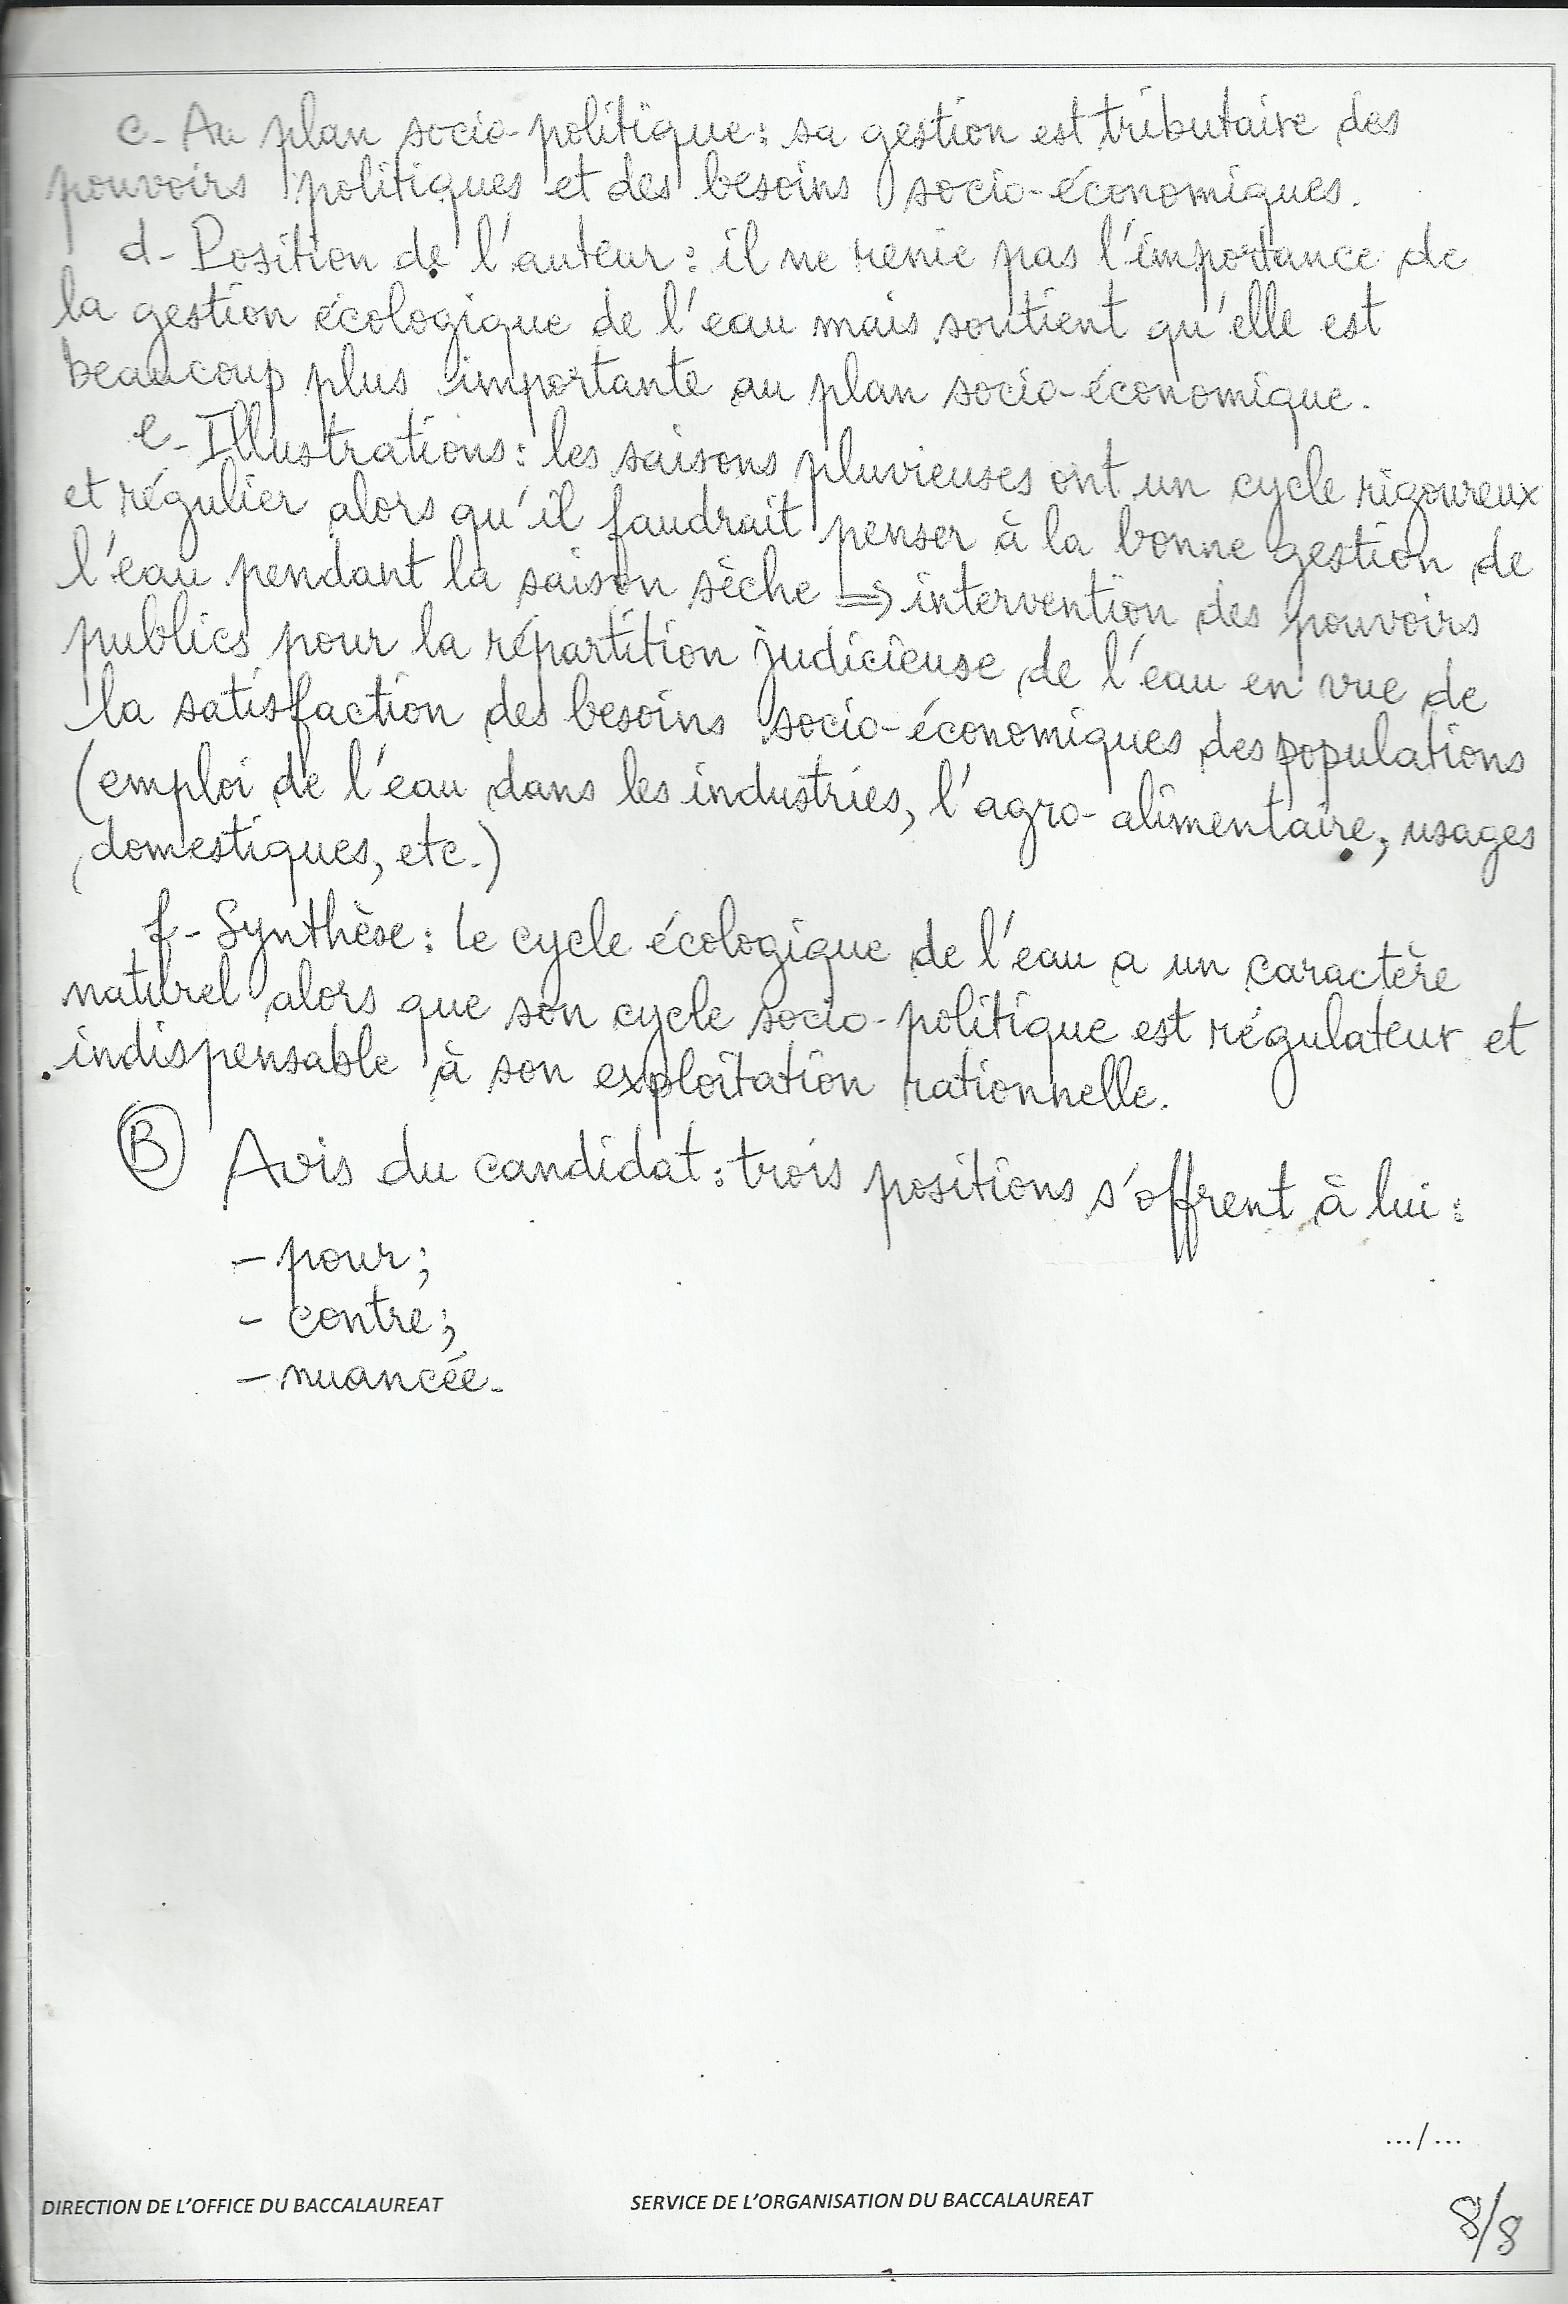 c- Au plan socio-politique : sa gestion est tributaire des
pouvoirs politiques et des besoins socio-économiques.
d- Position de l'auteur : il ne renie pas l'importance de
la gestion écologique de l'eau mais soutient qu'elle est
beaucoup plus importante au plan socio-économique.
e- Illustrations : les saisons pluvieuses ont un cycle rigoureux
et régulier alors qu'il faudrait penser à la bonne gestion de
l'eau pendant la saison sèche => intervention des pouvoirs
publics pour la répartition judicieuse de l'eau en vue de
la satisfaction des besoins socio-économiques des populations
(emploi de l'eau dans les industries, l'agro-alimentaire, usages
domestiques, etc.)
f- Synthèse : le cycle écologique de l'eau a un caractère
naturel alors que son cycle socio-politique est régulateur et
indispensable à son exploitation rationnelle.
B Avis du candidat : trois positions s'offrent à lui :
- pour ;
- contre ;
- nuancée.
.../...
DIRECTION DE L'OFFICE DU BACCALAUREAT SERVICE DE L'ORGANISATION DU BACCALAUREAT 8/8